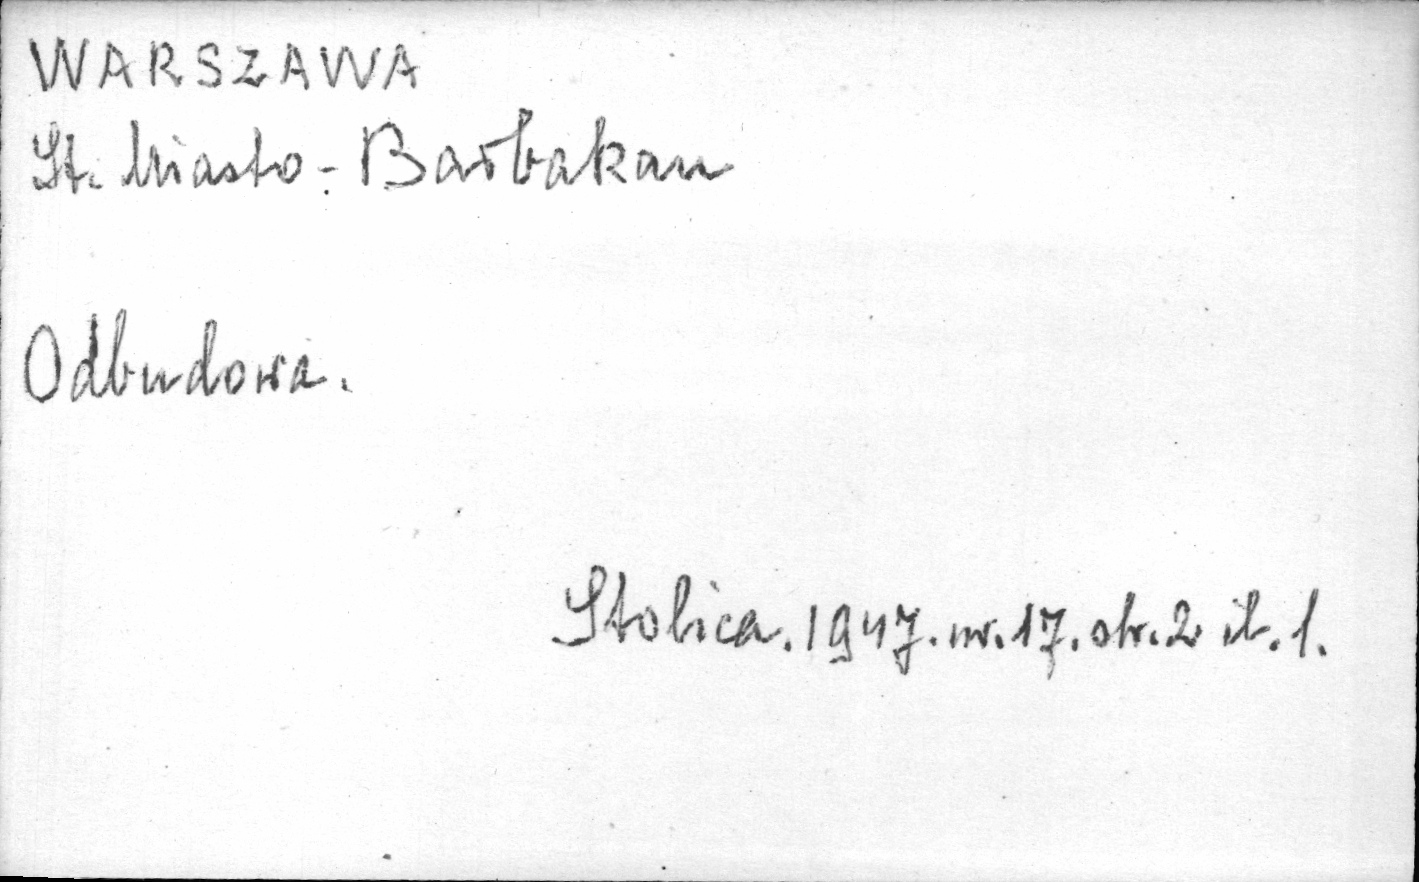 WARSZAWA
St. Miasto - Barbakan
Odbudowa.
Stolica. 1947. nr. 17. str. 2 il. 1.